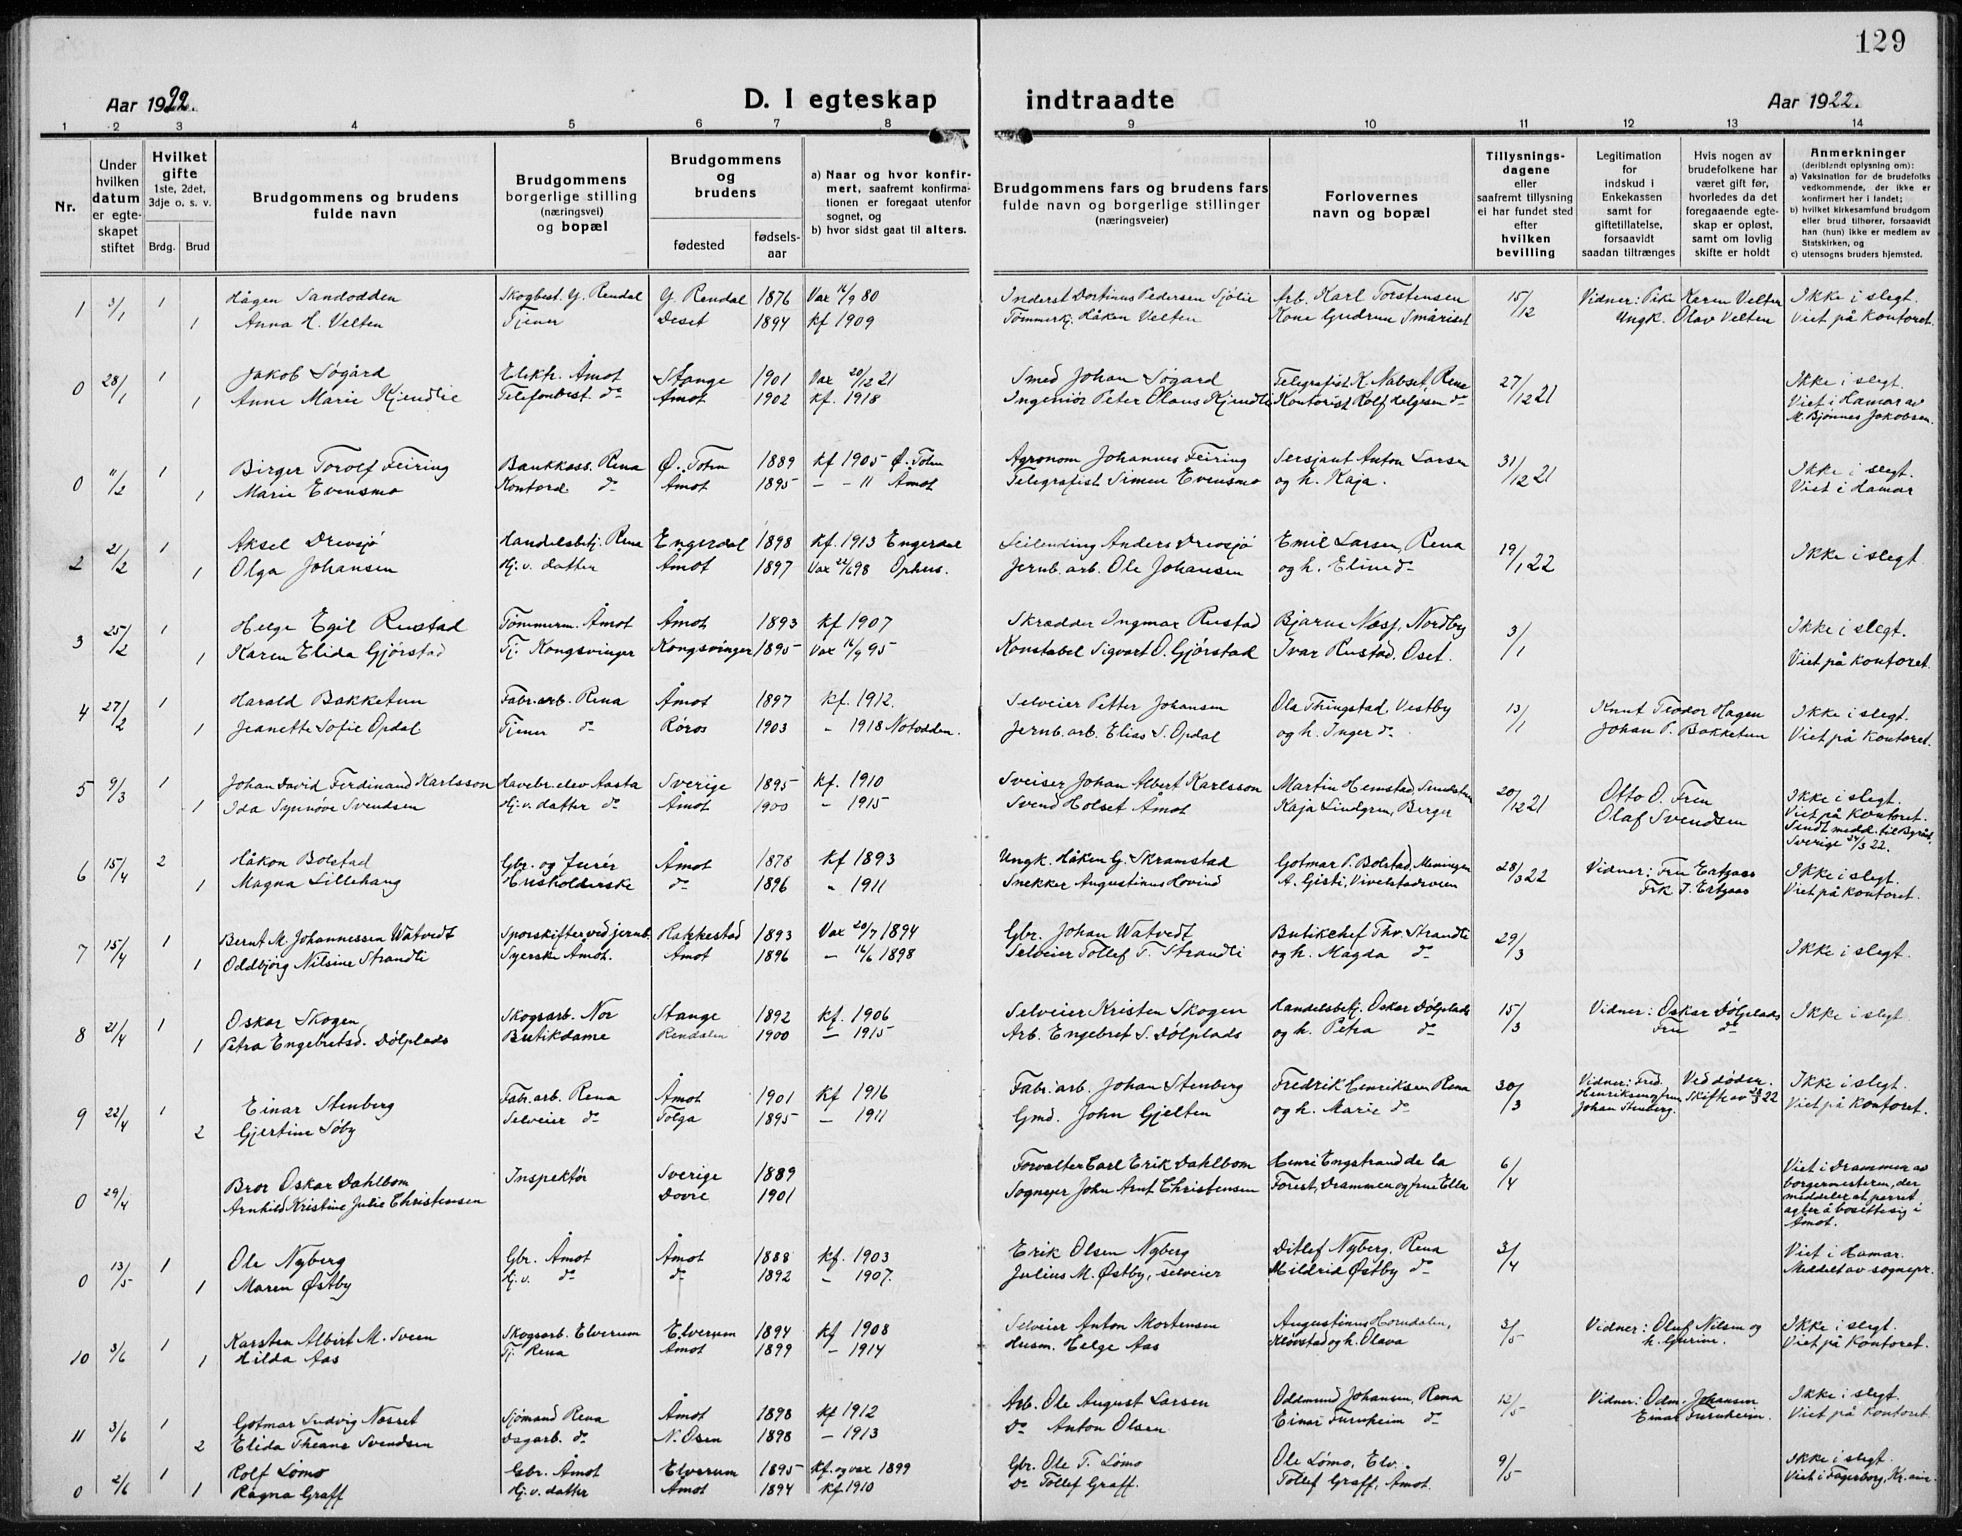 129
Aar 1922.
D. I egteskap indtraadte
Aar 1922.
1 2 3 4 5 6 7 8 9 10 11 12 13 14
Nr.
Under hvilken datum er egteskapet stiftet
Hvilket gifte 1ste, 2det, 3dje o. s. v.
Brdg. Brud
Brudgommens og brudens fulde navn
Brudgommens borgerlige stilling (næringsvei) og bopæl
Brudgommens og brudens
fødested fødselsaar
a) Naar og hvor konfirmert, saafremt konfirmationen er foregaat utenfor sognet, og
b) hvor sidst gaat til alters.
Brudgommens fars og brudens fars fulde navn og borgerlige stillinger (næringsveier)
Forlovernes navn og bopæl
Tillysningsdagene eller saafremt tillysning ei har fundet sted efter hvilken bevilling
Legitimation for indskud i Enkekassen samt for giftetillatelse, forsaavidt saadan tiltrænges
Hvis nogen av brudefolkene har været gift før, hvorledes da det foregaaende egteskap er opløst, samt om lovlig skifte er holdt
Anmerkninger (deriblandt oplysning om):
a) Vaksination for de brudefolks vedkommende, der ikke er konfirmert her i landet;
b) hvilket kirkesamfund brudgom eller brud tilhører, forsaavidt han (hun) ikke er medlem av Statskirken, og
c) utensogns bruders hjemsted.
1 3/1 1 Hågen Sandodden Skogbest. Y. Rendal Y. Rendal 1876 Vax 16/9 80 Inderst Dortinus Pedersen Sjølie Arb. Karl Torstensen 15/12 Vidner: Pike Karen Velten Ikke i slegt.
1 Anna H. Velten Tjener Deset 1894 kf 1909 Tømmerkj. Håken Velten Kone Gudrun Småriset Ungk. Olav Velten Viet på kontoret.
0 28/1 1 Jakob Søgård Elektr. Åmot Stange 1901 Vax 20/12 21 Smed Johan Søgard Telegrafist K. Nabset, Rena 27/12 21 Ikke i slegt.
1 Anne Marie Kjendlie Telefonbest. do Åmot 1902 kf. 1918 Ingeniør Peter Olaus Kjendlie Kontorist Rolf Helgesen do Viet i Hamar av
M. Bjønnes Jakobsen.
0 11/2 1 Birger Torolf Feiring Bankkass. Rena Ø. Toten 1889 kf 1905 Ø. Toten Agronom Johannes Feiring Sersjant Anton Larsen 31/12 21 Ikke i slegt.
1 Marie Evensmo Kontord. do Åmot 1895 - - 11 Åmot Telegrafist Simen Evensmo og h. Kaja. Viet i Hamar
2 21/2 1 Aksel Drevsjø Handelsbetj. Rena Engerdal 1898 kf. 1913 Engerdal Anders Drevsjø Emil Larsen, Rena 19/1 22 Ikke i slegt
1 Olga Johansen Hj.v. datter Åmot 1897 Vax 22/6 98 Ophus. Jernb. arb. Ole Johansen og h. Eline do
3 25/2 1 Helge Egil Rustad Tømmerm. Åmot Åmot 1893 kf 1907 Skrædder Ingmar Rustad Bjarne Næsj, Nordby 3/1 Ikke i slegt.
1 Karen Elida Gjørstad Tj. Kongsvinger Kongsvinger 1895 Vax 16/9 95 Konstabel Sigvart O. Gjørstad Ivar Rustad. Oset. Viet på kontoret.
4 27/2 1 Harald Bakketun Fabr. arb. Rena Åmot 1897 kf. 1912. Selveier Petter Johansen Ola Thingstad Vestby 13/1 Knut Teodor Hagen Ikke i slegt.
1 Jeanette Sofie Opdal Tjener do Røros 1903 - 1918 Notodden. Jernb. arb. Elias S. Opdal og h. Inger do Johan P. Bakketun Viet på kontoret.
5 9/3 1 Johan David Ferdinand Karlsson Havebr. elev Aasta Sverige 1895 kf. 1910 Sveiser Johan Albert Karlsson Martin Hemstad, 20/12 21 Otto O. Ikke i slegt.
1 Ida Synnøve Svendsen Hj.v. datter do Åmot 1900 - 1915 Svend Holset Åmot Kaja Lindgren, Berger Olaf Svendsen Viet på kontoret.
Sendt medd. til
Sverige 24/3 22.
6 15/4 2 Håkon Bolstad Gbr. og Åmot 1878 kf 1893 Ungk. Håken G. Skramstad Gotmar P. Bolstad, 28/3 22 Vidner: Fru Ertzaas Ikke i slegt.
1 Magna Lillehaug Husholderske do 1896 " 1911 Snekker Augustinus Hovind A. Viet på kontoret.
7 15/4 1 Bernt M. Johannessen Watvedt Sporskifter ved jernb. Rakkestad 1893 Vax 20/7 1894 Gbr. Johan Watvedt Butikchef Thv. Strandli 29/3 Ikke i slegt.
1 Oddbjørg Nilsine Strandli Syerske Åmot. Åmot 1896 - 16/6 1898 Selveier Tollef T. Strandli og h. Magda do
8 21/4 1 Oskar Skogen Skogsarb. Nor Stange 1892 kf. 1906 Selveier Kristen Skogen Handelsbetj. Oskar Dølplads 15/3 Vidner: Oskar Dølplads Ikke i slegt
1 Petra Engebretsd. Dølplads Butikdame Rendalen 1900 - 1915 Arb. Engebret S. Dølplads og h. Petra do Fru do
9 22/4 1 Einar Stenberg Fabr. arb. Rena Åmot 1901 kf 1916 Fabr. arb. Johan Stenberg Fredrik Henriksen Rena 30/3 Vidner: Fred. Henriksen og frue Johan Stenberg. Ved døden. Skifte av 23/3 22 Ikke i slegt.
2 Gjertine Søby Selveier do Tolga 1895 - 1911 Gmd. John Gjelten og h. Marie do Viet på kontoret.
0 29/4 Bror Oskar Dahlbom Inspektør Sverige 1889 Forvalter Carl Erik Dahlbom Henri Engstrand de la 6/4 Viet i Drammen av
Arnhild Kristine Julie Christensen Dovre 1901 Sognepr John Arnt Christensen Forest, Drammen og frue Ella borgermesteren, der
meddeler at parret
agter å bosette sig i
Åmot.
0 13/5 1 Ole Nyberg Gbr. Åmot Åmot 1888 kf. 1903 Erik Olsen Nyberg Ditlef Nyberg, Rena 3/4 Viet i Hamar.
1 Maren Østby Hj.v. do do 1892 - 1907. Julius M. Østby, selveier Mildrid Østby do Meddelt av sognepr.
10 3/6 1 Karsten Albert M. Sveen Skogsarb. Elverum Elverum 1894 kf 1908 Selveier Anton Mortensen Augustinus Horndalen, 3/5 Vidner: Oluf Nilsen og Ikke i slegt.
1 Hilda Aas Tj. Rena Åmot 1899 - 1914 Husm. Helge Aas Kløvstad og h. Olava h. Gurine. Viet på kontoret.
11 3/6 1 Gotmar Ludvig Nasset Sjømand Rena Åmot 1898 kf 1912 Arb. Ole August Larsen Oddmund Johansen, Rena 12/5 Vidner: Odm. Johansen Ikke i slegt.
2 Elida Theane Svendsen Dagarb. do N. Osen 1898 - 1913 do Anton Olsen Einar Furuheim do Einar Furuheim. Viet på kontoret
0 2/6 1 Rolf Lømo Gbr. Åmot Elverum 1895 kf. og vax 1899 Gbr. Ole T. Lømo Ole Lømo, Elv. 9/5 Ikke i slegt.
1 Ragna Graff Hj.v. datter Åmot 1894 kf. 1910 do Tollef Graff. Tollef Graff, Åmot. Viet i Fagerborg, Kr.ania